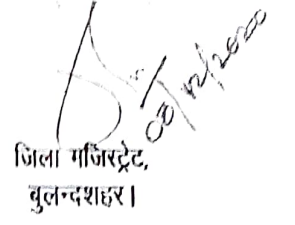 08/12/2020
जिला मजिस्ट्रेट,
बुलन्दशहर।